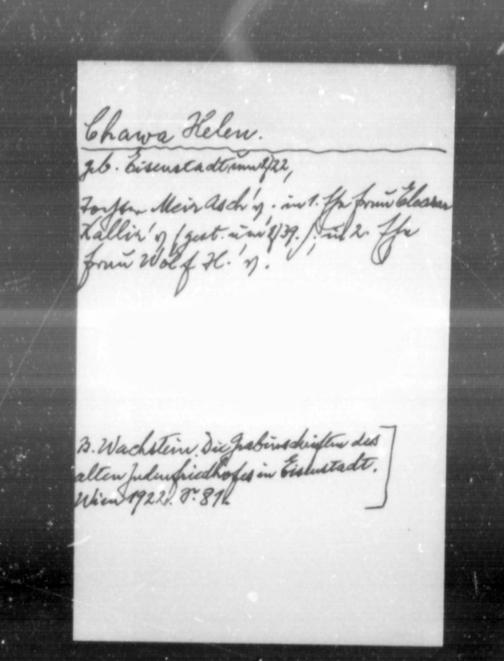 Chawa Helen.
geb. Eisenstadt, um 2/22,
Tochter Meir Asch's. in 1. Ehe Frau Eleasar
Kallir's (gest. um 2/39.); in 2. Ehe
Frau Wolf H.'s.
B. Wachstein. Die Grabinschriften des
alten Judenfriedhofes in Eisenstadt.
Wien 1922. S. 81.